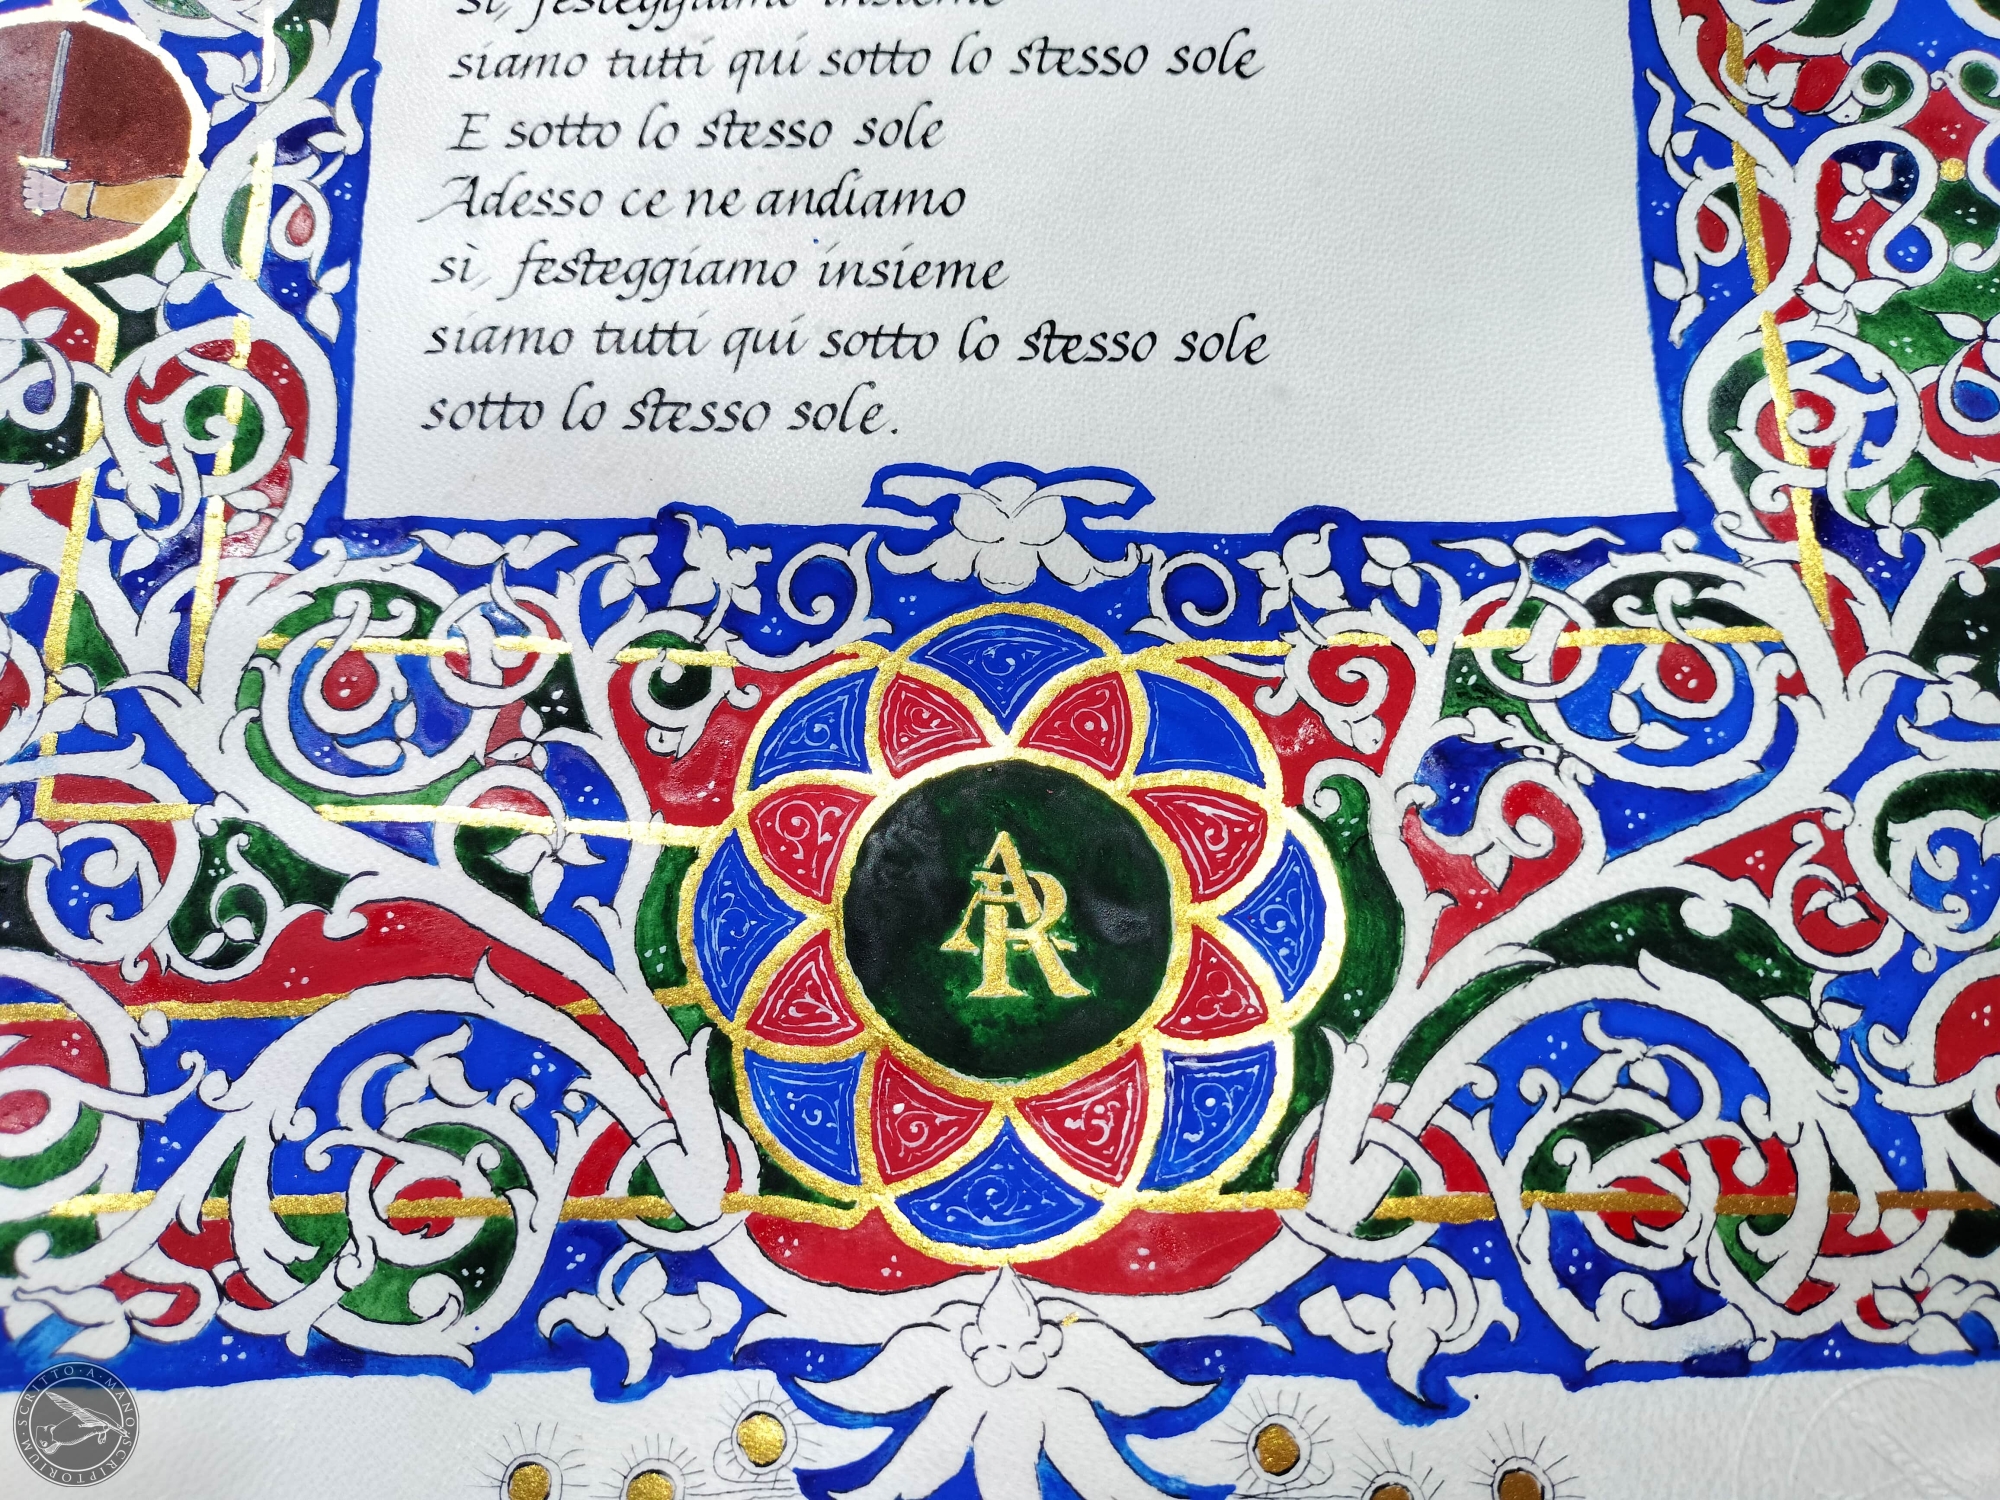 sì, festeggiamo insieme
siamo tutti qui sotto lo stesso sole
E sotto lo stesso sole
Adesso ce ne andiamo
sì, festeggiamo insieme
siamo tutti qui sotto lo stesso sole
sotto lo stesso sole.
AR
SCRITTO·A·MANO·SCRIPTORIUM·